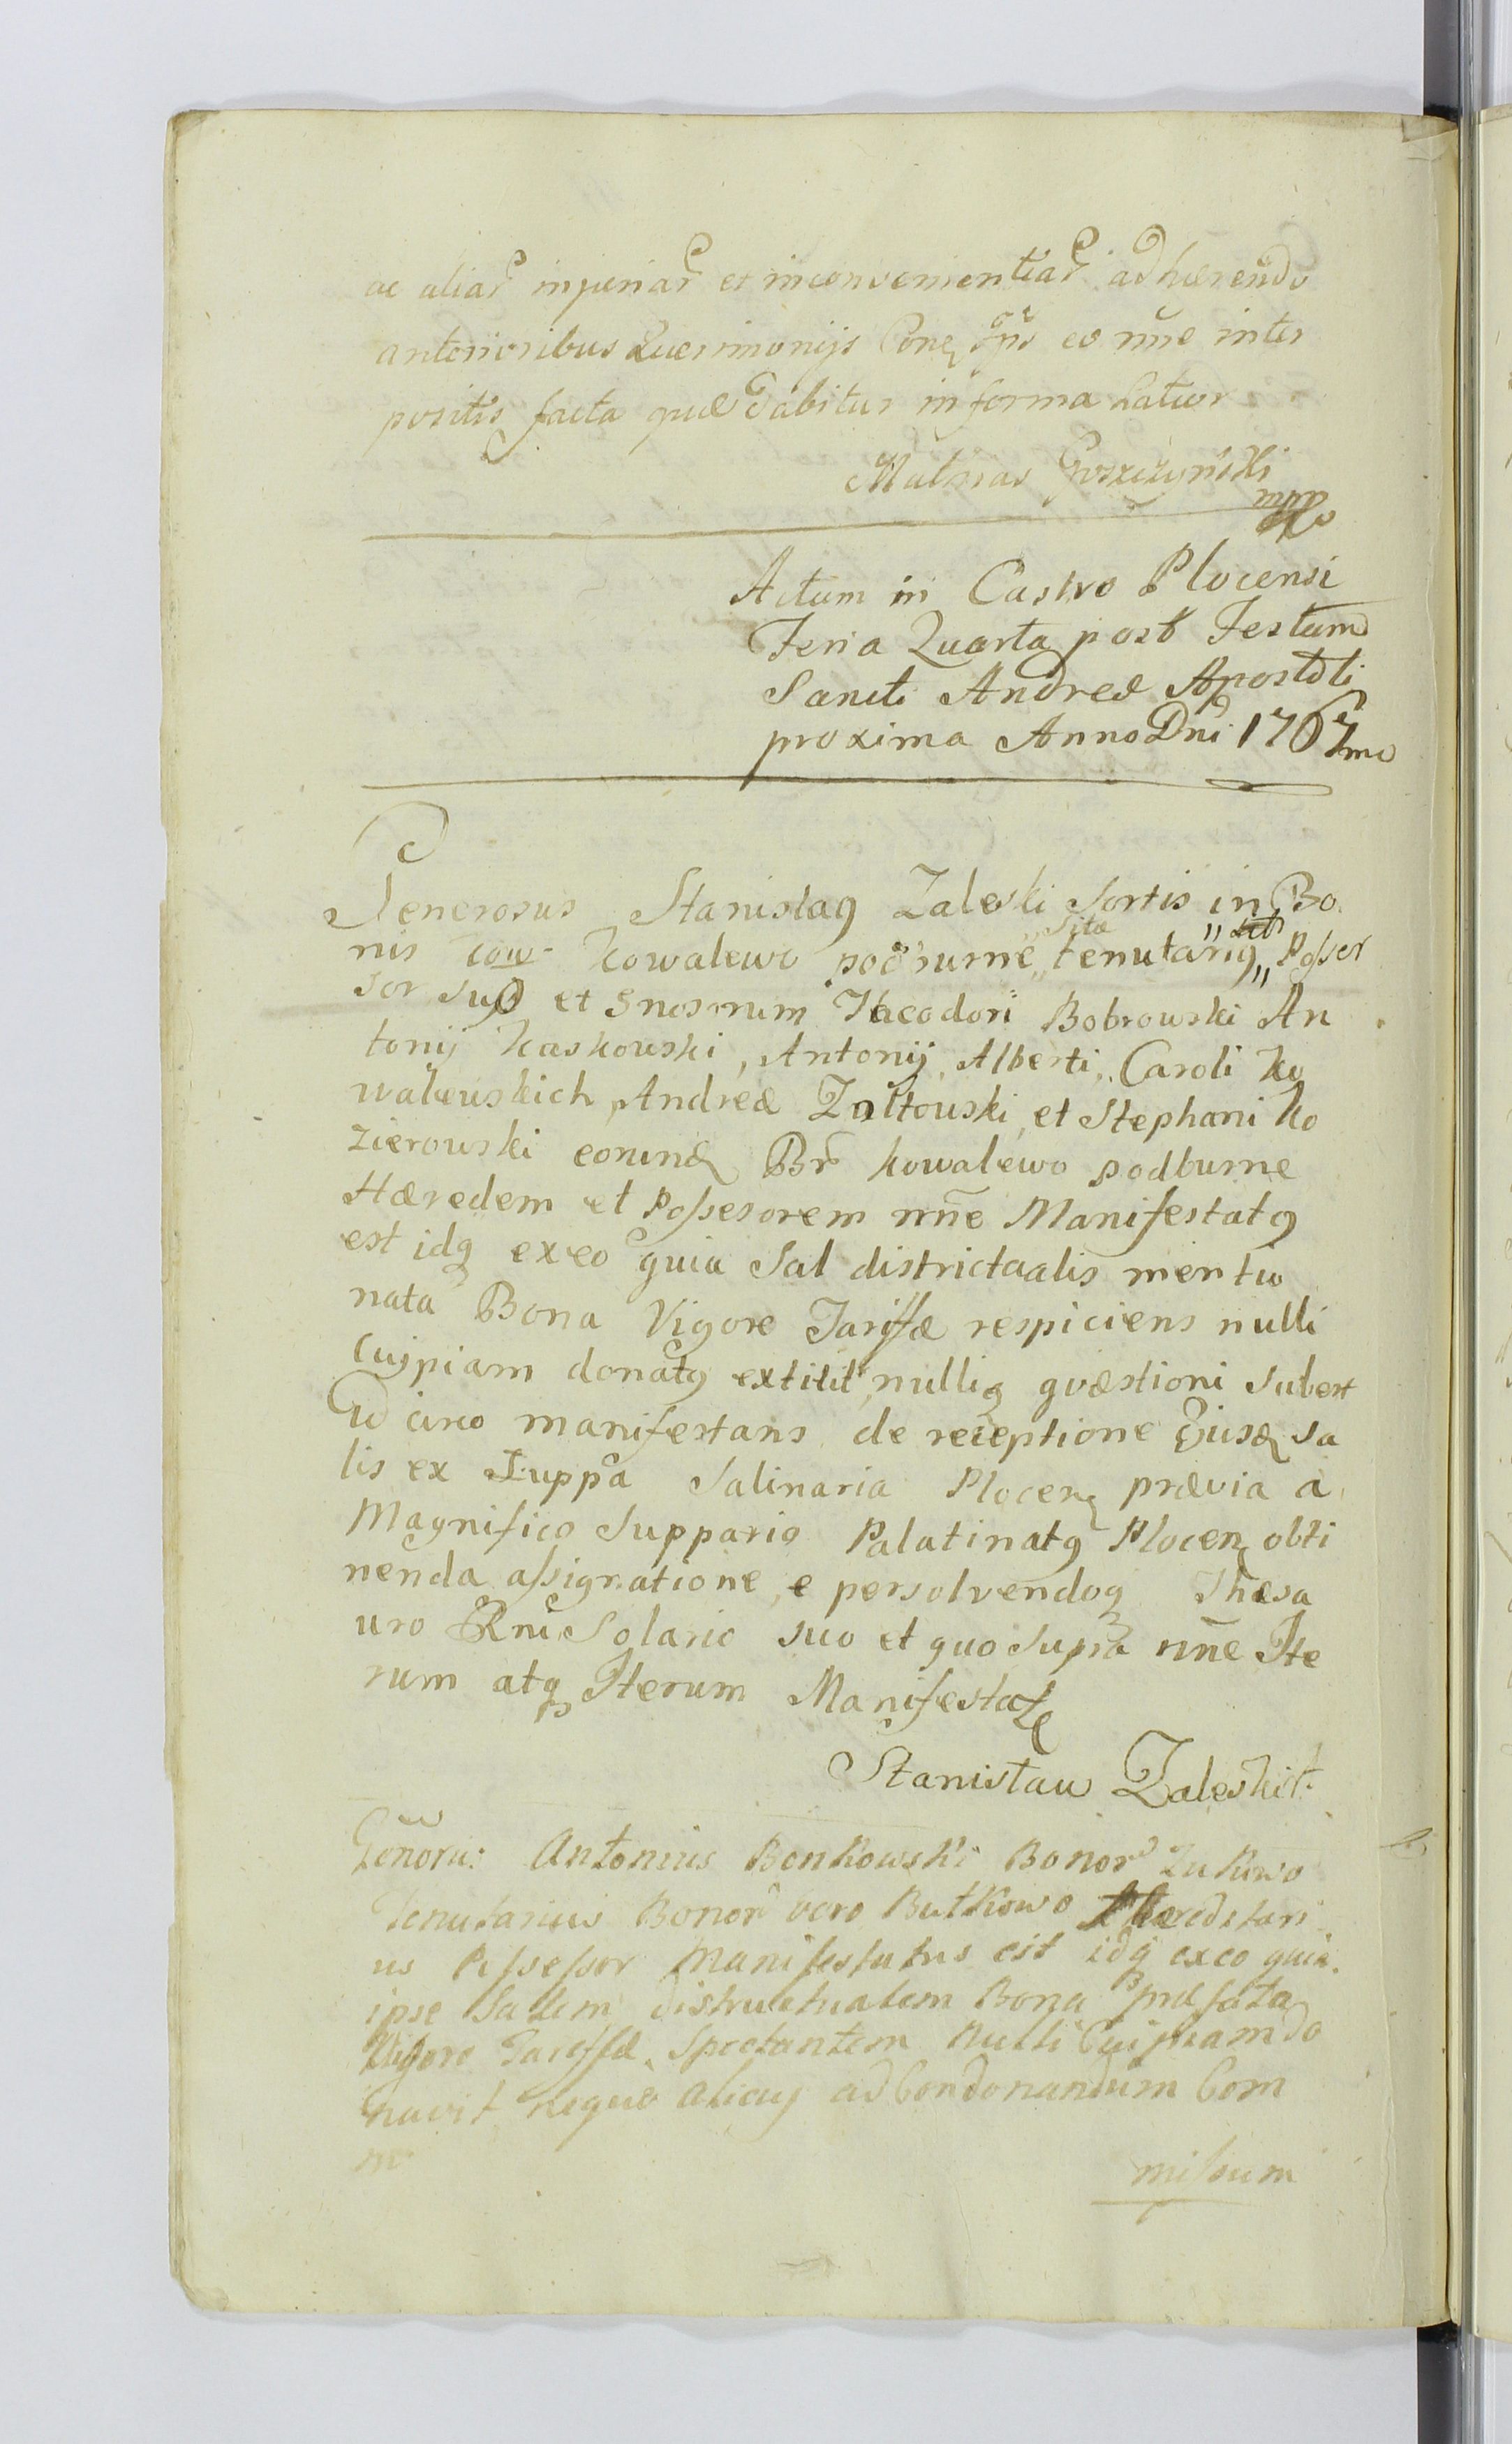 ac aliar injuriar et inconvenientiar adhærendo
anterioribus Querimonijs eo nñe inter
positis facta quæ dabitur in forma Latior
Mathias Goszczynski
mpp
Actum in Castro Plocensi
Feria Quarta post Festum
Sancti Andreæ Apostoli
proxima Anno Dni 1767mo
Generosus Stanislaq Zaleski Sortis in Bo
nis Kowalewo podburne Sitæ tenutariq Posses
sor suo et Gnosorum Theodori Bobrowski An
tonij Kaskowski, Antonij, Alberti, Caroli Ko
walewskich, Andreæ Zołtowski, et Stephani Ko
zierowski eorund Br Kowalewo podburne
Hæredem et Possesorem nñe Manifestatq
est idq exeo quia Sal districtualis mentio
nata Bona Vigore Tariffæ respiciens nulli
Cuipiam donatq extitit, nulliq quæstioni Subest
Id circo manifestans de receptione Ejusd Sa
lis ex Zuppa Salinaria Plocen prævia a
Magnifico Suppario Palatinatq Plocen obti
nenda assignatione, e persolvendoq Thesa
uro Rni Solario suo et quo Supra nñe Ite
rum atq Iterum Manifestat
Stanisław Zaleski
Antonius Bonkowski Bonor Zukowo
Tenutarius Bonor vero Butkowo Hæreditari
us Possessor Manifestatus est idq exeo quia
ipse Salem districtualem Bona præfata
Vigore Tariffæ Spectantem Nulli Cuipiam do
navit neque alicuj ad Condonandum Com
missum